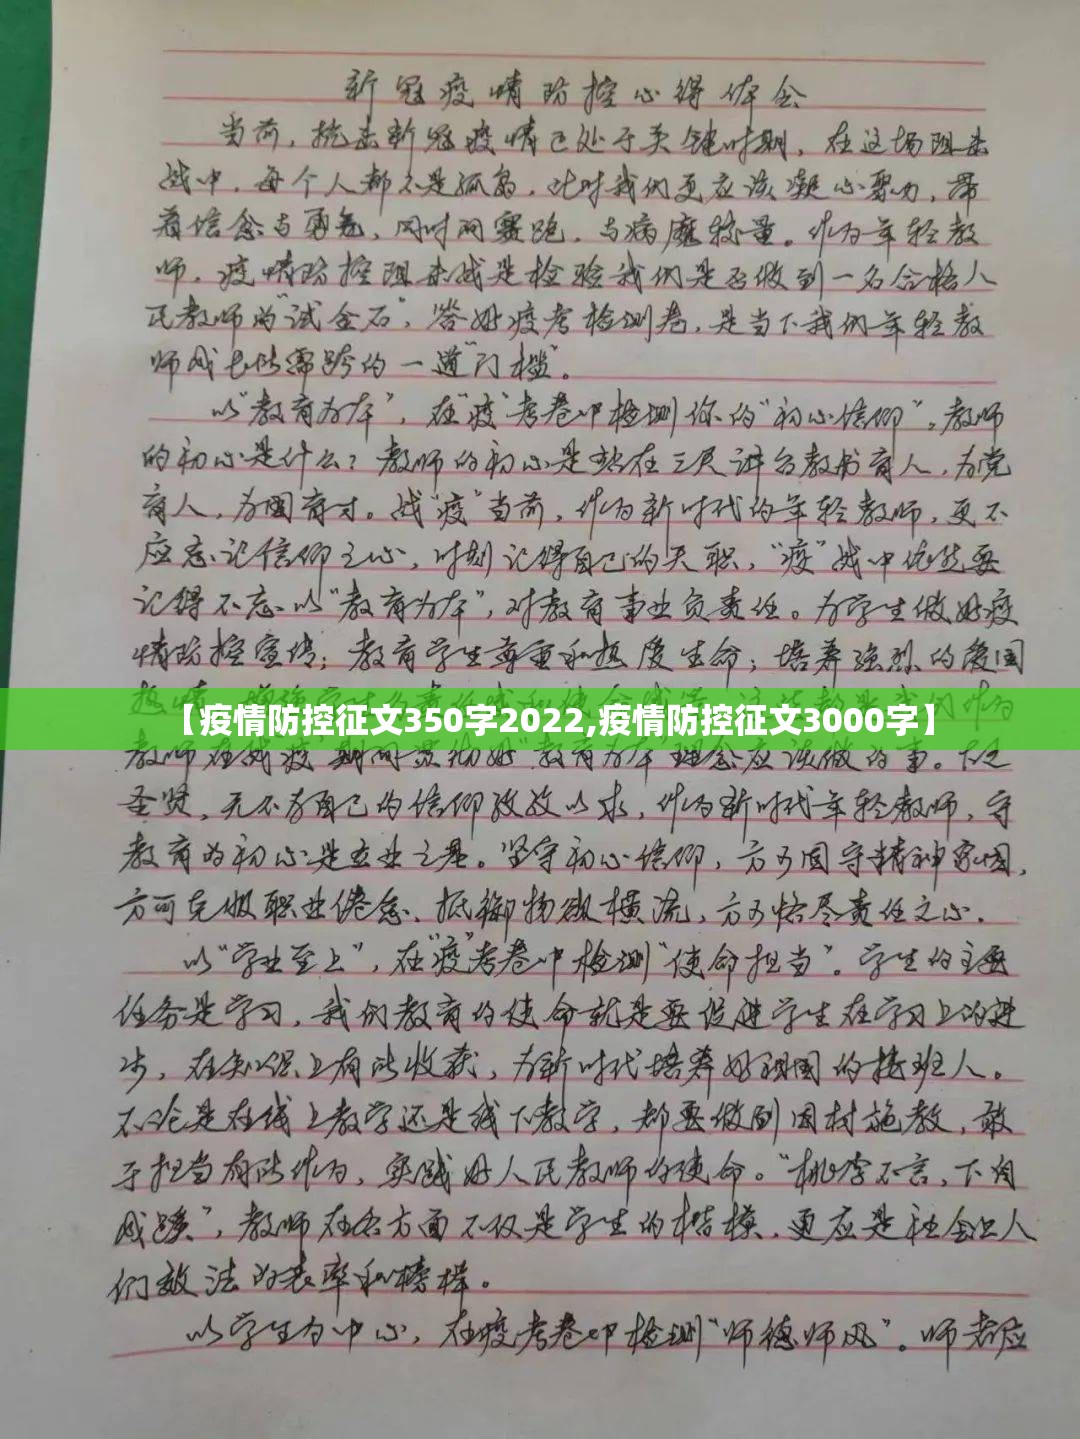 新冠疫情防控心得体会
当前，抗击新冠疫情已处于关键时期，在这场阻击
战中，每个人都不是孤岛，此时我们更应该凝心聚力，带
着信念与勇气，同时间赛跑，与病魔较量。作为年轻教
师，疫情防控阻击战是检验我们是否做到一名合格人
民教师的“试金石”，答好疫考检测卷，是当下我们年轻教
师成长所需跨的一道“门槛”。
以“教育为本”，在“疫”考卷中检测你的“初心信仰”。教师
的初心是什么？教师的初心是站在三尺讲台教书育人，为党
育人，为国育才。战“疫”当前，作为新时代的年轻教师，更不
应忘记信仰之心，时刻记得自己的天职，“疫”战中依然要
记得不忘以“教育为本”，对教育事业负责任。为学生做好疫
情防控宣传；教育学生尊重和热爱生命；培养强烈的爱国
【疫情防控征文350字2022,疫情防控征文3000字】
教师在战疫期间贯彻好“教育为本”理念应该做的事。
圣贤，无不为自己的信仰孜孜以求，作为新时代年轻教师，守
教育的初心是立业之基。坚守初心信仰，方可固守精神家园，
方可克服职业倦怠、抵御物欲横流，方可恪尽责任之心。
以“学业至上”，在“疫”考卷中检测“使命担当”。学生的主要
任务是学习，我们教育的使命就是要促进学生在学习上的进
步，在知识上有所收获，为新时代培养好祖国的接班人。
不论是在线上教学还是线下教学，都要做到因材施教，敢
于担当有所作为，实践好人民教师的使命。“桃李不言，下自
成蹊”，教师在各方面不仅是学生的楷模，更应是社会上人
们效法的表率和榜样。
以学生为中心，在疫考卷中检测“师德师风”。师者应